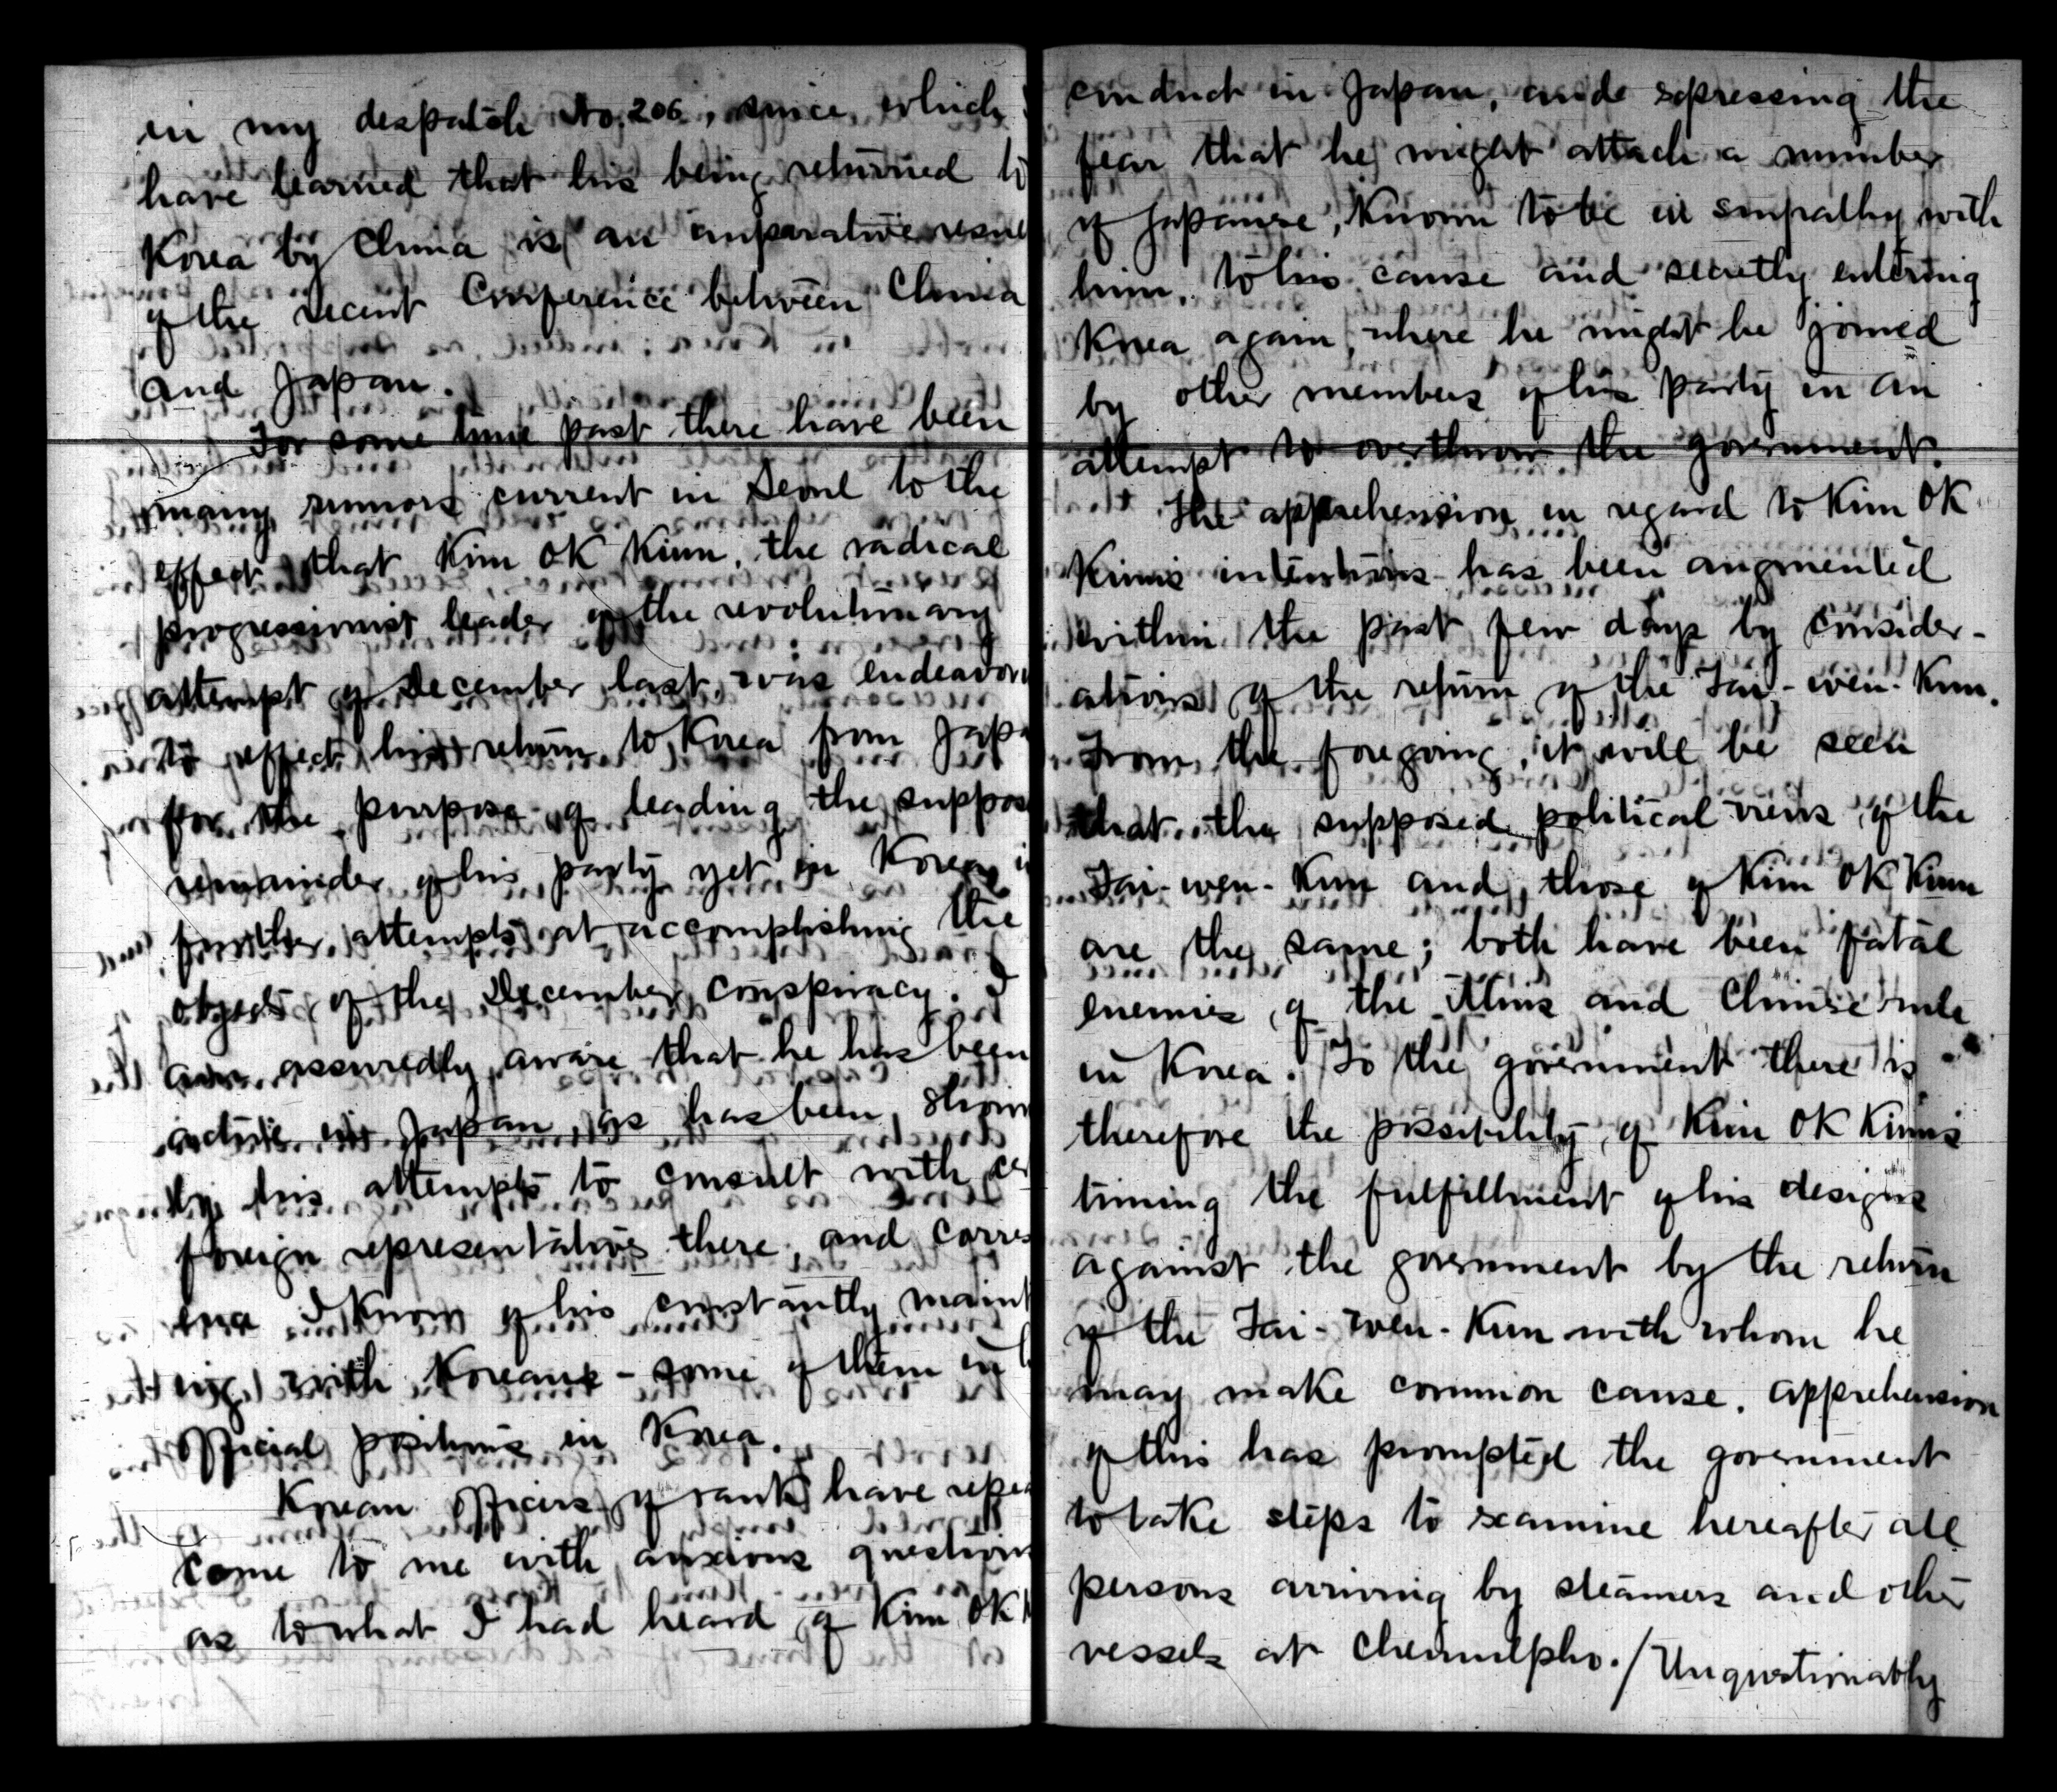 in my despatch No. 206, since which
have learned that his being returned to
Korea by China is an imperative resul
of the recent Conference between China
and Japan.
For some time past there have been
many rumors current in Seoul to the
effect that Kim OK Kiun, the radical
progressionist leader of the revolutionary
attempt of December last, was endeavori
to effect his return to Korea from Japa
for the purpose of leading the suppose
remainder of his party yet in Korea i
further attempts at accomplishing the
objects of the December conspiracy. I
am assuredly aware that he has been
active in Japan, as has been shown
by his attempts to consult with cer
foreign representatives there, and corres
ence I know of his constantly maint
ing with Koreans - some of them in
official positions in Korea.
Korean officers of rank have repea
come to me with anxious questions
as to what I had heard of Kim OK K
conduct in Japan, and expressing the
fear that he might attach a number
of Japanese, known to be in smpathy with
him, to his cause and secretly entering
Korea again, where he might be joined
by other members of his party in an
attempt to overthrow the government.
The apprehension in regard to Kim OK
Kiun's intentions has been augmented
within the past few days by consider-
ations of the return of the Tai-wen-Kun.
From the foregoing, it will be seen
that the supposed political views of the
Tai-wen-Kun and those of Kim OK Kiun
are the same; both have been fatal
enemies of the Mins and Chinese rule
in Korea. To the government there is
therefore the possibility of Kim OK Kiun's
timing the fulfillment of his designs
against the government by the return
of the Tai-wen-Kun with whom he
may make common cause. Apprehension
of this has prompted the government
to take steps to examine hereafter all
persons arriving by steamers and other
vessels at Chemulpho. / Unquestionably